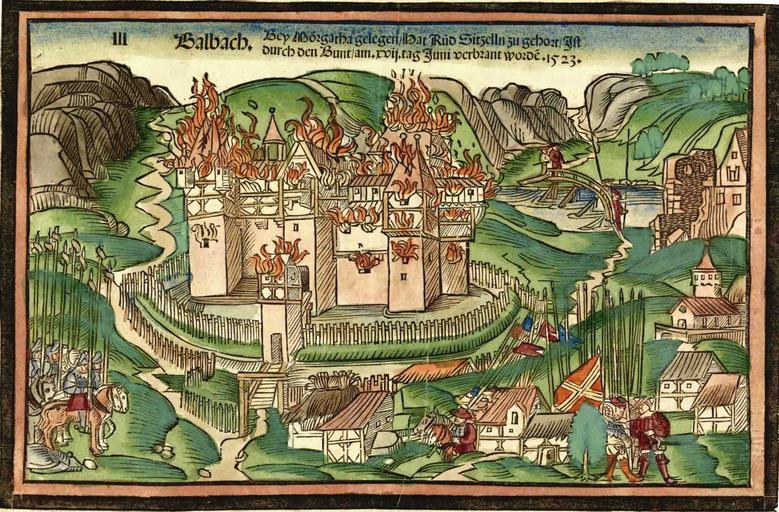 III Balbach. Bey Mörgatha gelegen/Hat Rüd Sitzelln zu gehort/Ist
durch den Bunt/am. xvij. tag Junij verbrant wordē .1523.